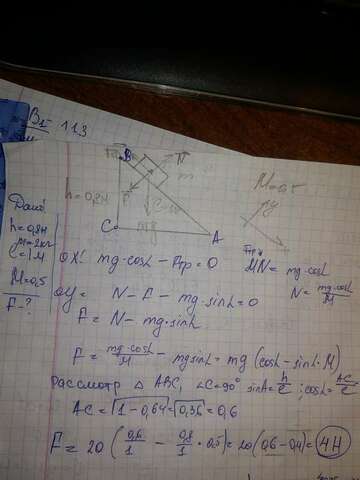 B₁ 113
Fтр B N
m
h = 0,8м
F
C A
mg
M=0,5
y
Дано:
h = 0,8м
m = 2кг
l = 1м
M=0,5
F - ?
OX: mg·cosL - Fтр = 0
Fтр
MN = mg·cosL
OY = N - F - mg·sinL = 0
N = mg·cosL / M
F = N - mg·sinL
F = mg·cosL / M - mg sinL = mg (cosL - sinL·M)
Рассмотр △ ABC, ∠C=90° sinL = h/l ; cosL = AC/l
AC = √1 - 0,64 = √0,36 = 0,6
F = 20 ( 0,6/1 - 0,8/1 · 0,5) = 20(0,6 - 0,4) = 4H